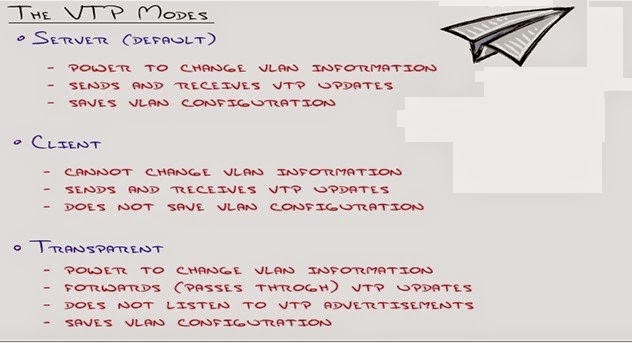 THE VTP MODES
• SERVER (DEFAULT)
- POWER TO CHANGE VLAN INFORMATION
- SENDS AND RECEIVES VTP UPDATES
- SAVES VLAN CONFIGURATION
• CLIENT
- CANNOT CHANGE VLAN INFORMATION
- SENDS AND RECEIVES VTP UPDATES
- DOES NOT SAVE VLAN CONFIGURATION
• TRANSPARENT
- POWER TO CHANGE VLAN INFORMATION
- FORWARDS (PASSES THROGH) VTP UPDATES
- DOES NOT LISTEN TO VTP ADVERTISEMENTS
- SAVES VLAN CONFIGURATION